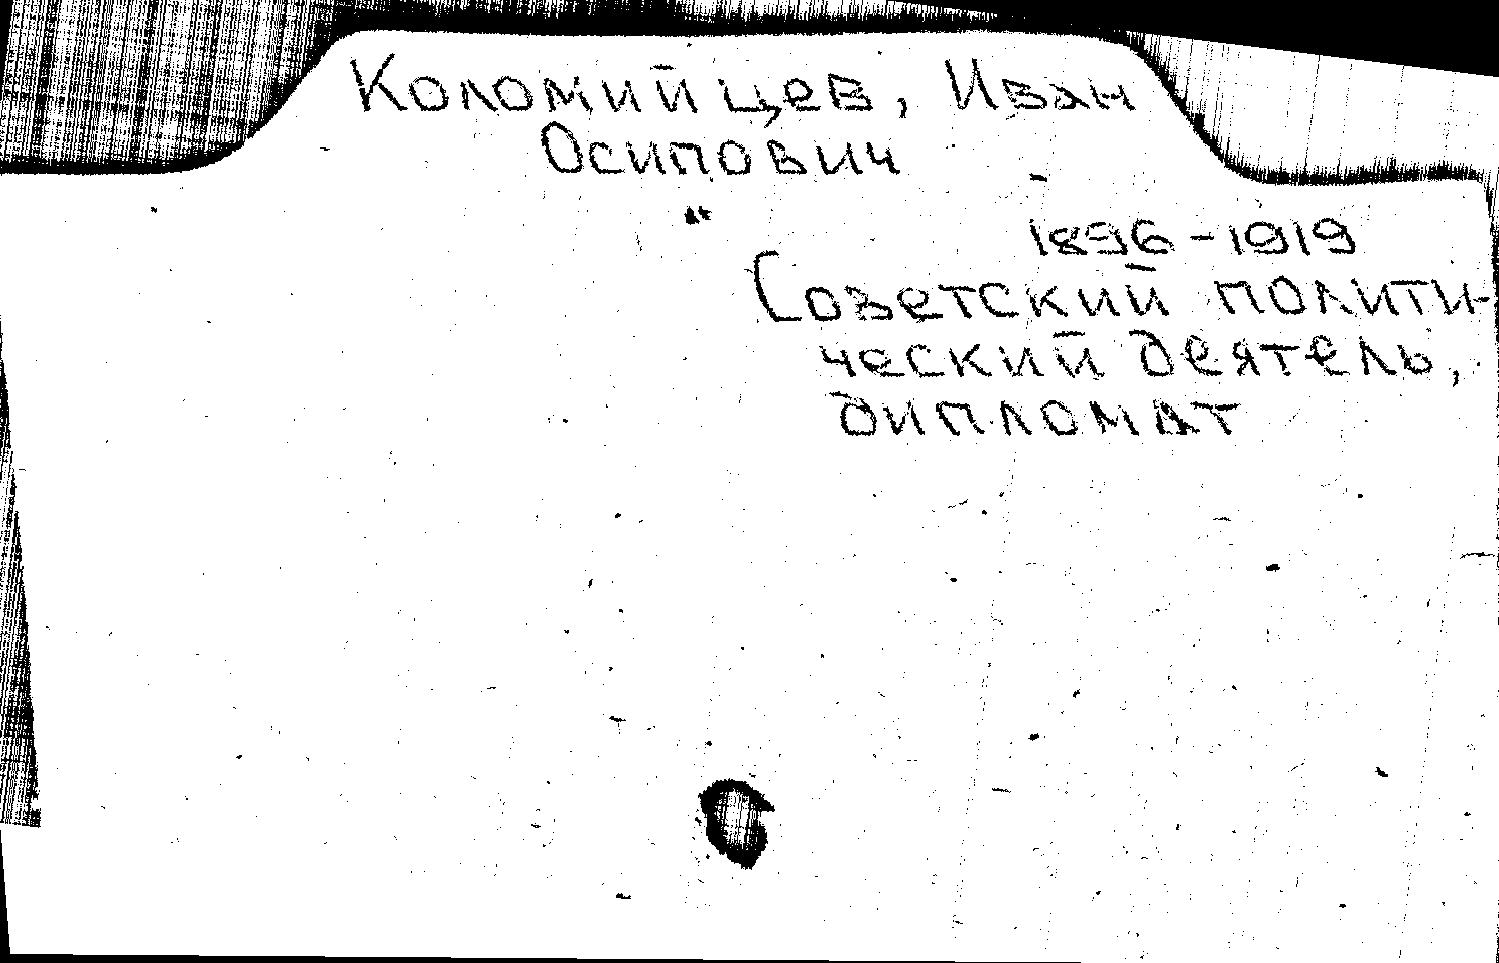 Коломийцев, Иван
Осипович
1896-1919
Советский полити-
ческий деятель,
дипломат